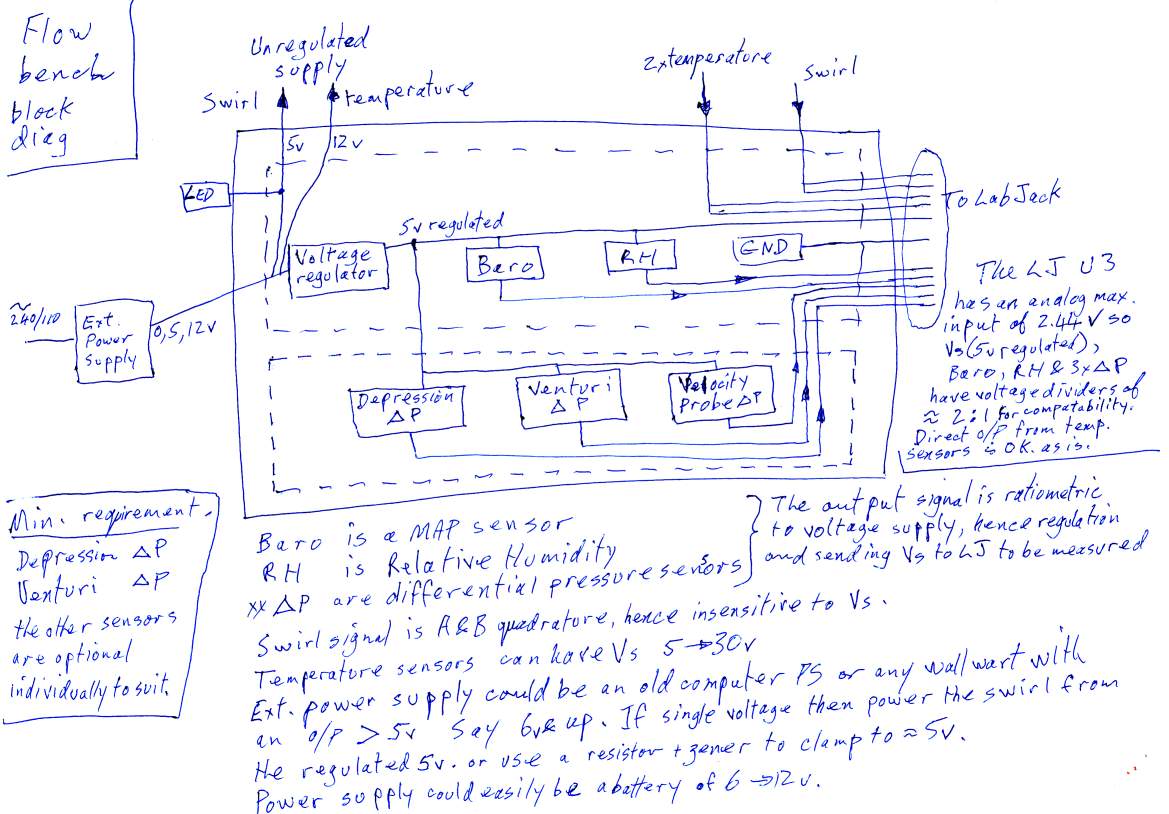 Flow
bench
block
diag
Unregulated
supply
Swirl
temperature
5v
12v
2xtemperature
Swirl
LED
To LabJack
5v regulated
Voltage
regulator
Baro
RH
GND
~
240/110
Ext.
Power
Supply
0,5,12v
Depression
ΔP
Venturi
ΔP
Velocity
Probe ΔP
The LJ U3
has an analog max.
input of 2.44 V so
Vs (5v regulated),
Baro, RH & 3xΔP
have voltage dividers of
≈ 2:1 for compatability.
Direct o/p from temp.
sensors is OK. as is.
Min. requirement.
Depression ΔP
Venturi ΔP
the other sensors
are optional
individually to suit.
Baro is a MAP sensor
RH is Relative Humidity
xx ΔP are differential pressure senors s
The output signal is ratiometric
to voltage supply, hence regulation
and sending Vs to LJ to be measured
Swirl signal is A&B quadrature, hence insensitive to Vs.
Temperature sensors can have Vs 5→30v
Ext. power supply could be an old computer PS or any wall wart with
an o/p > 5v Say 6v & up. If single voltage then power the swirl from
the regulated 5v. or use a resistor + zener to clamp to ≈ 5v.
Power supply could easily be a battery of 6→12v.